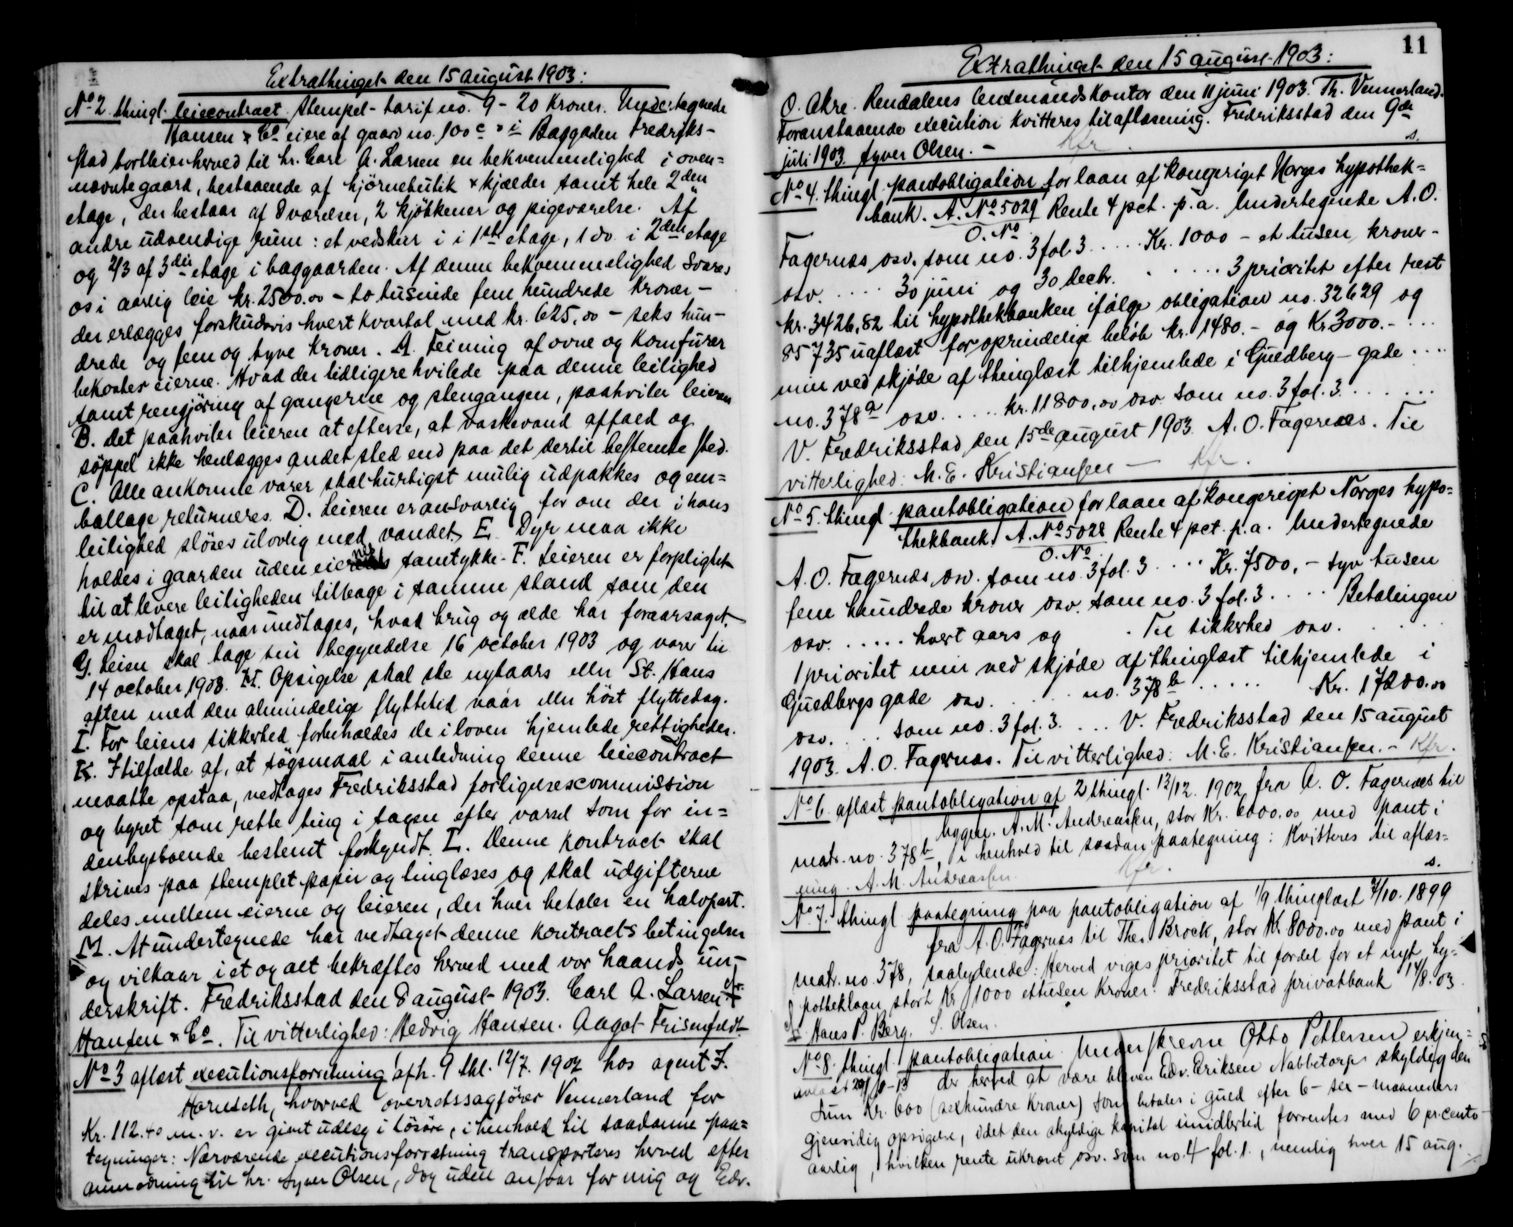 Extrathinget den 15 august 1903:
No 2. thingl. leiecontract stempel-tarif no. 9 - 20 kroner. Undertegnede
Hansen & Co. eiere af gaard no. 100 c & i Baggaden Fredriks-
stad bortleier herved til hr. Carl A. Larsen en bekvemmelighed i oven-
nævnte gaard, bestaaende af hjørnebutik & kjælder samt hele 2den
etage, der bestaar af 8 værelser, 2 kjøkkener og pigeværelse. Af
andre udvendige rum: et vedskur i i 1st etage, 1 do. i 2den etage
og 2/3 af 3die etage i baggaarden. Af denne bekvemmelighed svares
os i aarlig leie kr. 2500.00 - to tusinde fem hundrede kroner -
der erlægges forskudsvis hvert kvartal med kr. 625.00 - seks hun-
drede og fem og tyve kroner. A. Feining af ovne og komfurer
bekoster eierne. Hvad der tidligere hvilede paa denne leilighed
samt rengjøring af gangerne og stengangen, paahviler leieren
B. det paahviler leieren at efterse, at vaskevand affald og
søppel ikke henlægges andet sted end paa det dertil bestemte sted.
C. Alle ankomne varer skal hurtigst mulig udpakkes og em-
ballage returneres. D. Leieren er ansvarlig for om der i hans
leilighed sløses ulovlig med vandet. E. Dyr maa ikke
holdes i gaarden uden eiernes samtykke. F. Leieren er forpligtet
til at levere leiligheden tilbage i samme stand som den
er modtaget, naar undtages, hvad brug og ælde har foraarsaget.
G. Leien skal tage sin begyndelse 16 october 1903 og varer til
14 october 1908. H. Opsigelse skal ske nytaars eller St. Hans
aften med den almindelige flyttetid vaar eller høst flyttedag.
I. For leiens sikkerhed forbeholdes de i loven hjemlede rettigheder.
K. I tilfælde af, at søgsmaal i anledning denne leiecontract
maatte opstaa, vedtages Fredriksstad forligelsescommission
og byret som rette ting i sagen efter varsel som for in-
denbysboende bestemt forkyndt. L. Denne kontract skal
skrives paa stemplet papir og tinglæses og skal udgifterne
deles mellem eierne og leieren, der hver betaler en halvpart.
M. At undertegnede har vedtaget denne kontracts betingelser
og vilkaar i et og alt bekræftes herved med vor haands un-
derskrift. Fredriksstad den 8 august 1903. Carl A. Larsen
Hansen & Co. Til vitterlighed: Hedvig Hansen. Aagot Frisenfeldt
No 3 aflæst executionsforretning afh. 9 thl. 12/7. 1902 hos agent F.
hvorved overretssagfører Vennerland for
Kr. 112.40 m. v. er givet udlæg i løsøre, i henhold til saadanne paa-
tegninger: Nærværende executionsforretning transporteres herved efter
anmodning til hr. Syver Olsen, dog uden ansvar for mig og Edv.
11
Extrathinget den 15 august 1903:
O. Akre. Rendalens lensmandskontor den 11 juni 1903. Th. Vennerland.
Foranstaaende execution kvitteres til aflæsning. Fredriksstad den 9de
juli 1903 Syver Olsen. - Kfr. s.
No 4. thingl. pantobligation for laan af kongeriget Norges hypothek-
bank. A. No 5029 Rente 4 pct. p. a. Undertegnede A. O.
O. No
Fagernæs osv. som no. 3 fol. 3 ..... Kr. 1000 - et tusen kroner -
osv. .... 30 juni og 30 decbr. ..... 3 prioritet efter rest
kr. 3426,82 til hypothekbanken ifølge obligation no. 32629 og
85735 uaflæst for oprindelige beløb kr. 1480.- og Kr. 3000.- ...
min ved skjøde af thinglæst tilhjemlede i Guedberg-gade ....
no. 378 a osv. .... kr. 11800.00 osv. som no. 3 fol. 3 .......
V. Fredriksstad den 15de august 1903. A. O. Fagernæs. Til
vitterlighed: M. E. Kristiansen - Kfr.
No 5. thingl. pantobligation for laan af kongeriget Norges hypo-
thekbank. A. No 5028 Rente 4 pct. p. a. Undertegnede
O. No
A. O. Fagernæs, osv. som no. 3 fol. 3 .... Kr. 7500.- syv tusen
fem hundrede kroner osv. som no. 3 fol. 3 ..... Betalingen
osv. ..... hvert aars og . Til sikkerhed osv. .....
1 prioritet min ved skjøde af thinglæst tilhjemlede i
Guedbergs gade osv. ..... no. 378 b ..... Kr. 17200.00
osv. .... som no. 3 fol. 3 .... V. Fredriksstad den 15 august
1903. A. O. Fagernæs. Til vitterlighed: M. E. Kristiansen. - Kfr.
No 6. aflæst pantobligation af 2 thingl. 13/12. 1902 fra A. O. Fagernæs til
bygm. A. M. Andreassen, stor Kr. 6000.00 med pant i
matr. no. 378 b, i henhold til saadan paategning: Kvitteres til aflæs-
ning. A. M. Andreassen. Kfr. s.
No 7. thingl. paategning paa pantobligation af 1/9 thinglæst 7/10. 1899
fra A. O. Fagernæs til Ths. Brock, stor Kr. 8000.00 med pant i
matr. no. 378, saalydende: Herved viges prioritet til fordel for et nyt hy-
potheklaan, stort Kr. 1000 ettusen kroner. Fredriksstad privatbank 14/8.03.
Hans P. Berg. S. Olsen.
No 8. thingl. pantobligation. Underskrevne Otto Pettersen erkjen-
der herved at være bleven Edv. Eriksen Nabbetorp skyldig den
Sum Kr. 600 (sexhundre kroner) som betales i gued efter 6 - sex - maaneders
gjensidig opsigelse, idet den skyldige kapital imidlertid forrentes med 6 procento
aarlig, hvilken rente ukrævt osv. som no. 4 fol. 1., nemlig hver 15 aug.